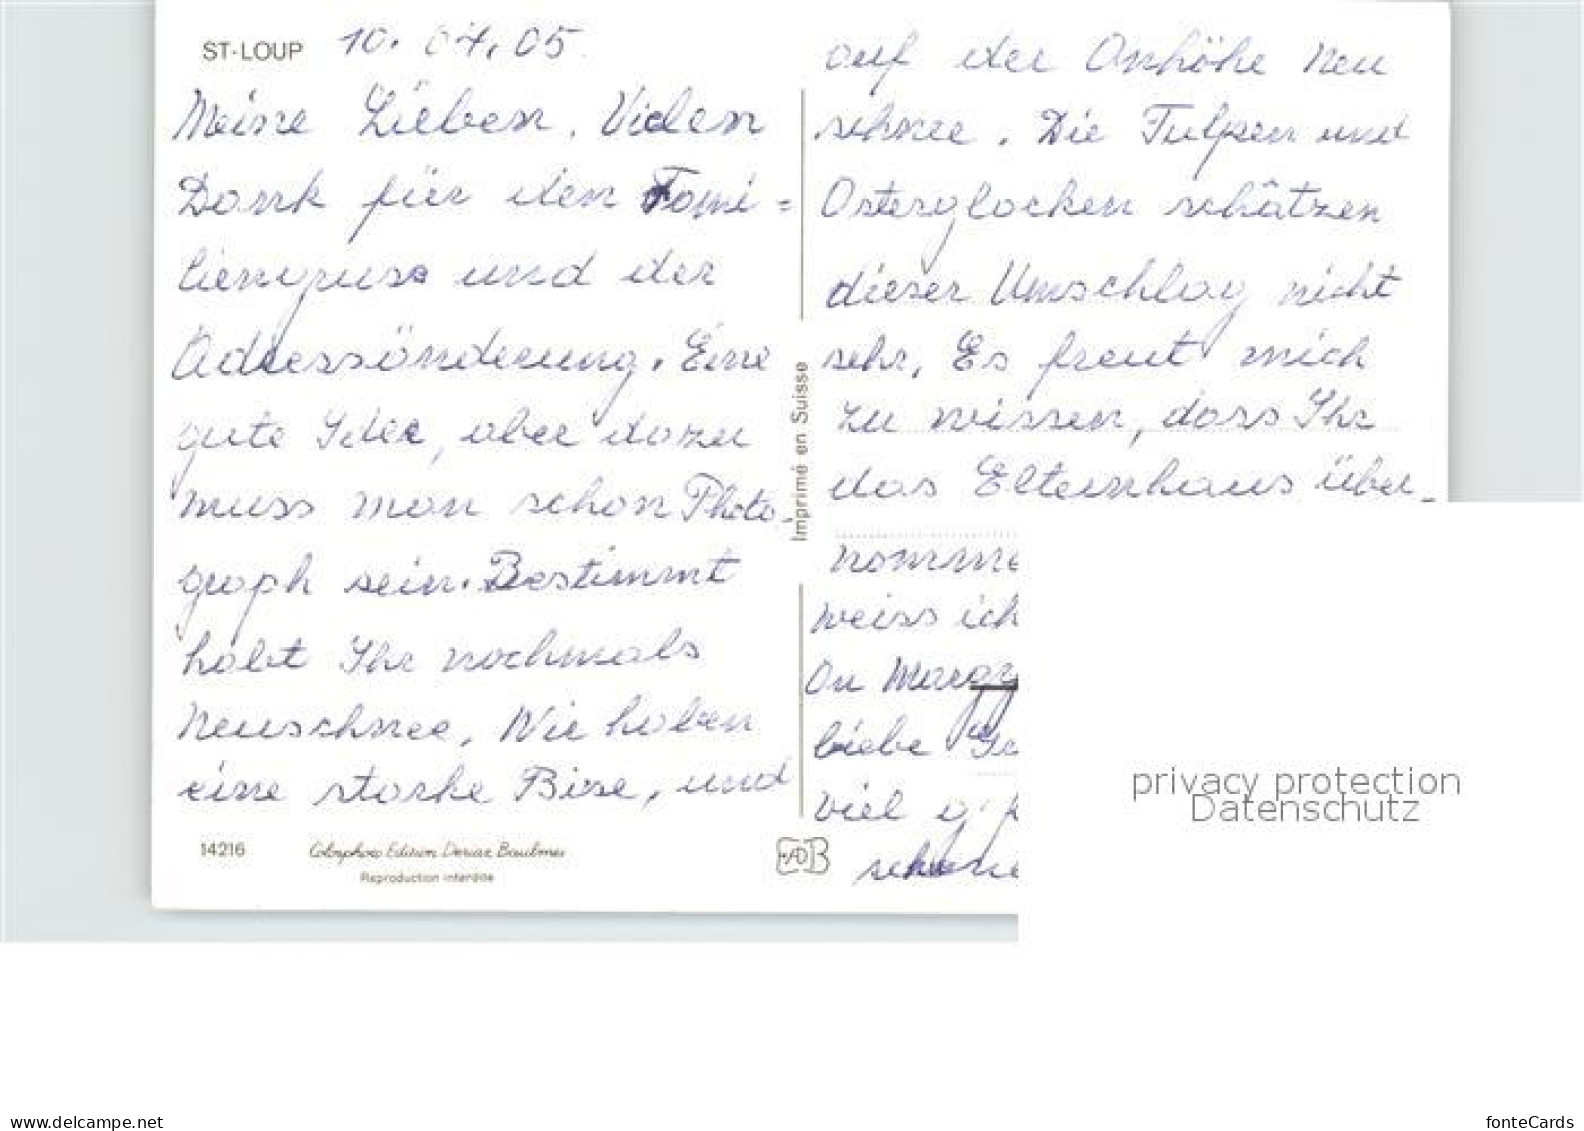 ST-LOUP 10. 04. 05
Meine Lieben. Vielen
Dank für den Fami=
liengruss und der
Adressänderung. Eine
gute Idee, aber dazu
muss man schon Photo-
graph sein. Bestimmt
habt Ihr nochmals
Neuschnee, Wir haben
eine starke Bise, und
14216
Colorphoto Edition Deriaz Baulmes
Reproduction interdite
Imprimé en Suisse
auf der Anhöhe Neu
schnee. Die Tulpen und
Osterglocken schätzen
dieser Umschlag nicht
sehr. Es freut mich
zu wissen, dass Ihr
das Elternhaus über-
nomme
weiss ich
liebe
viel
privacy protection
Datenschutz
www.delcampe.net
fonteCards